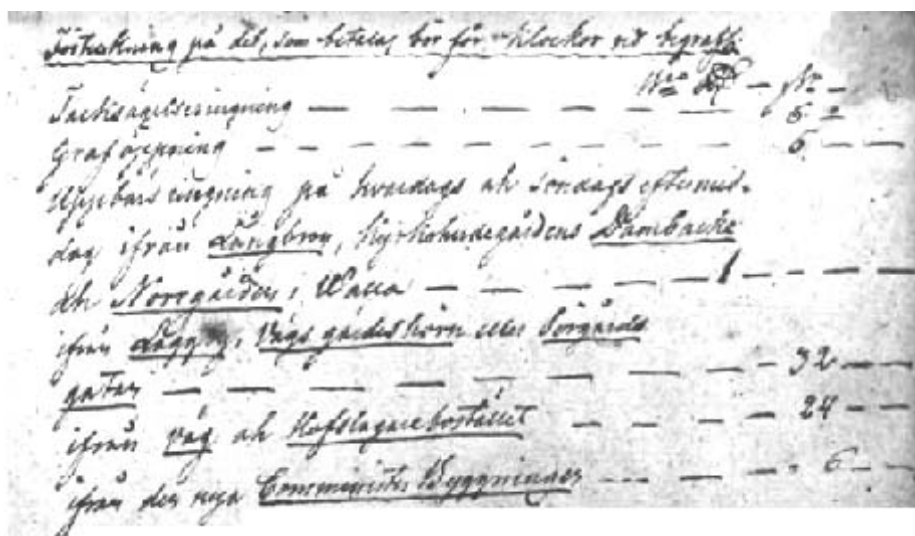 Förteckning på det, som betalas bör för Klockor vid begrafn.
Tacksägelseringning — — — — — 5
Graföppning — — — — — — 6 — —
ringning på hvardags och söndags eftermid-
dag ifrån Långbro, Kyrkoherdegårdens Dambacke
och Norrgården i Wacca — — — — 1 — — — —
ifrån gärdeshörn eller Sörgårds
gatan — — — — — — — 32 — —
ifrån väg och Hofslagarebostället — — — 24 — —
ifrån den nya Comministers Byggningen — — — 6 — —